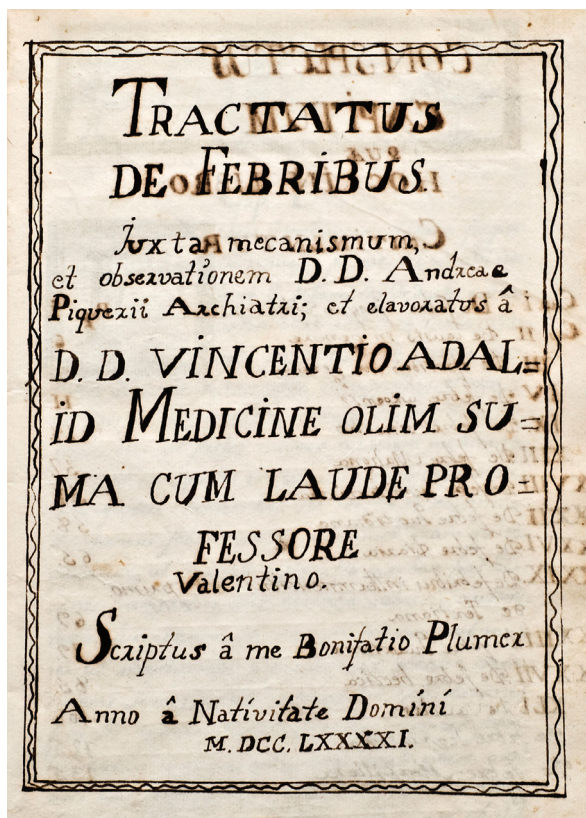 TRACTATUS
DE FEBRIBUS.
juxta mecanismum,
et observationem D. D. Andreae
Piquerii Archiatri; et elavoratus â
D. D. VINCENTIO ADAL=
ID MEDICINE OLIM SU=
MA CUM LAUDE PRO=
FESSORE
Valentino.
Scriptus â me Bonifatio Plumer
Anno â Nativitate Domini
M. DCC. LXXXXI.